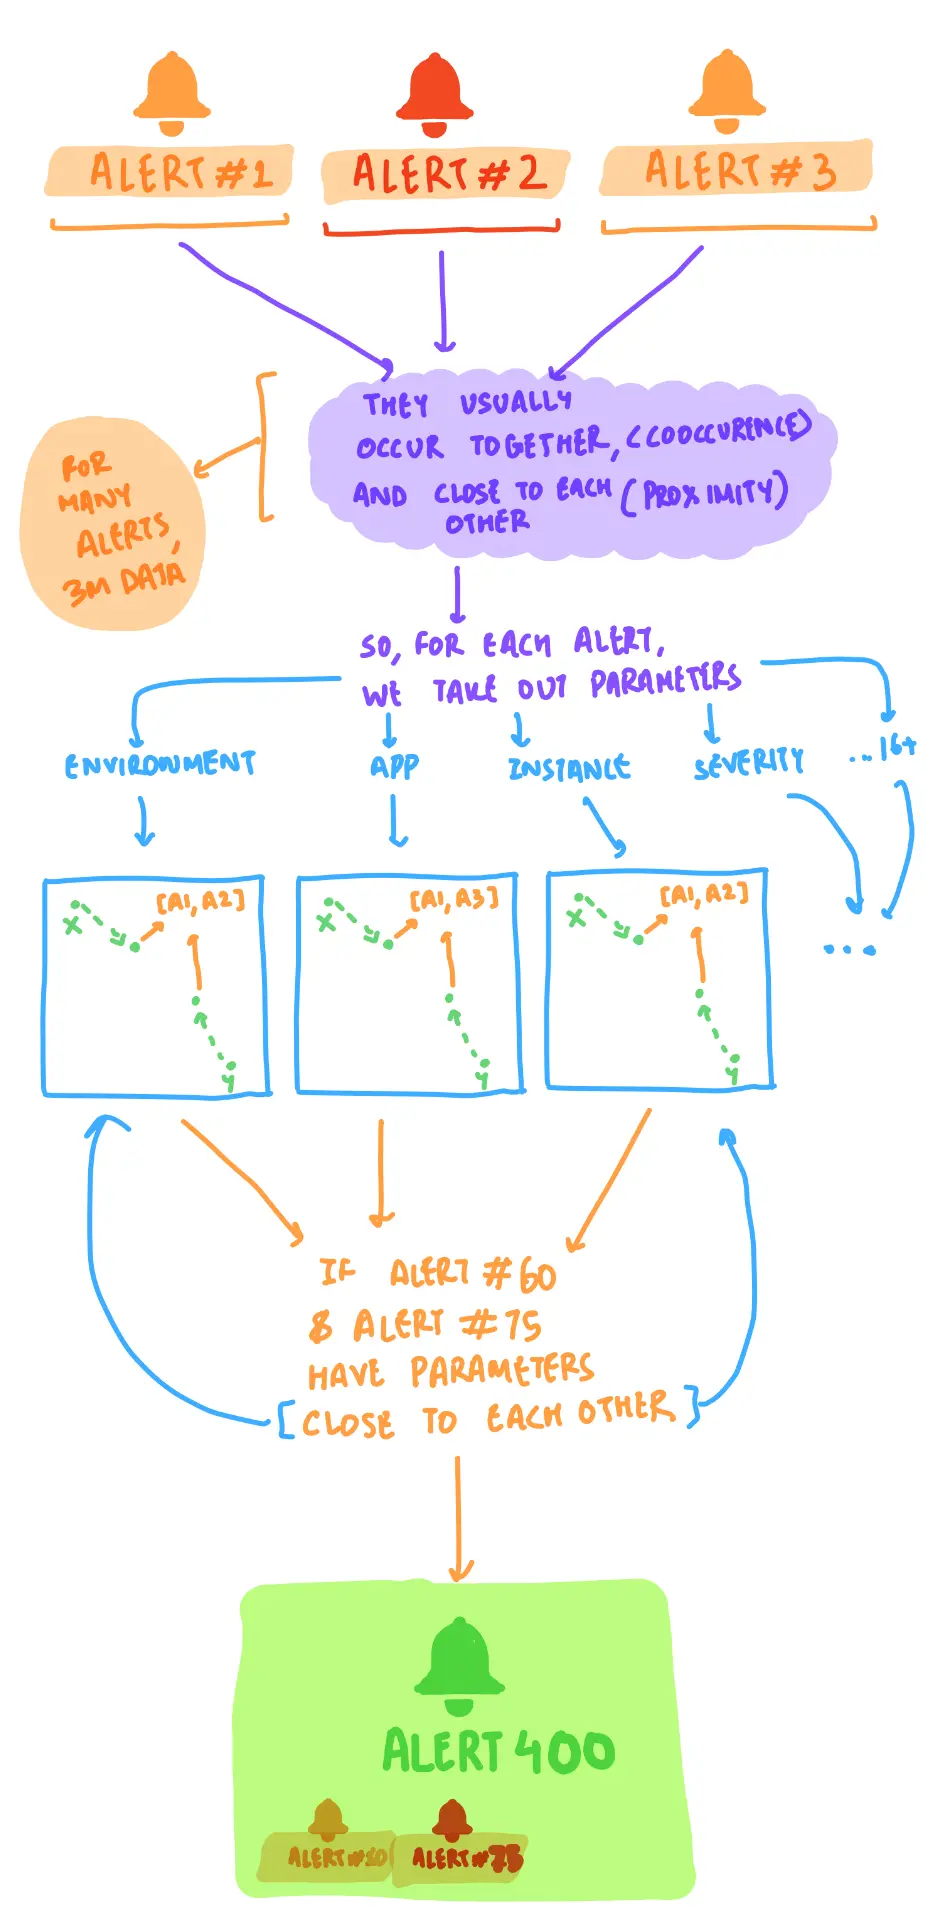 ALERT #1
ALERT #2
ALERT #3
THEY USUALLY
OCCUR TOGETHER, (COOCCURENCE)
AND CLOSE TO EACH (PROXIMITY)
OTHER
FOR
MANY
ALERTS,
3M DATA
SO, FOR EACH ALERT,
WE TAKE OUT PARAMETERS
ENVIRONMENT
APP
INSTANCE
SEVERITY
...16+
[A1, A2]
X
Y
[A1, A3]
X
Y
[A1, A2]
X
Y
...
IF ALERT #60
& ALERT #75
HAVE PARAMETERS
[CLOSE TO EACH OTHER]
ALERT 400
ALERT
ALERT #75